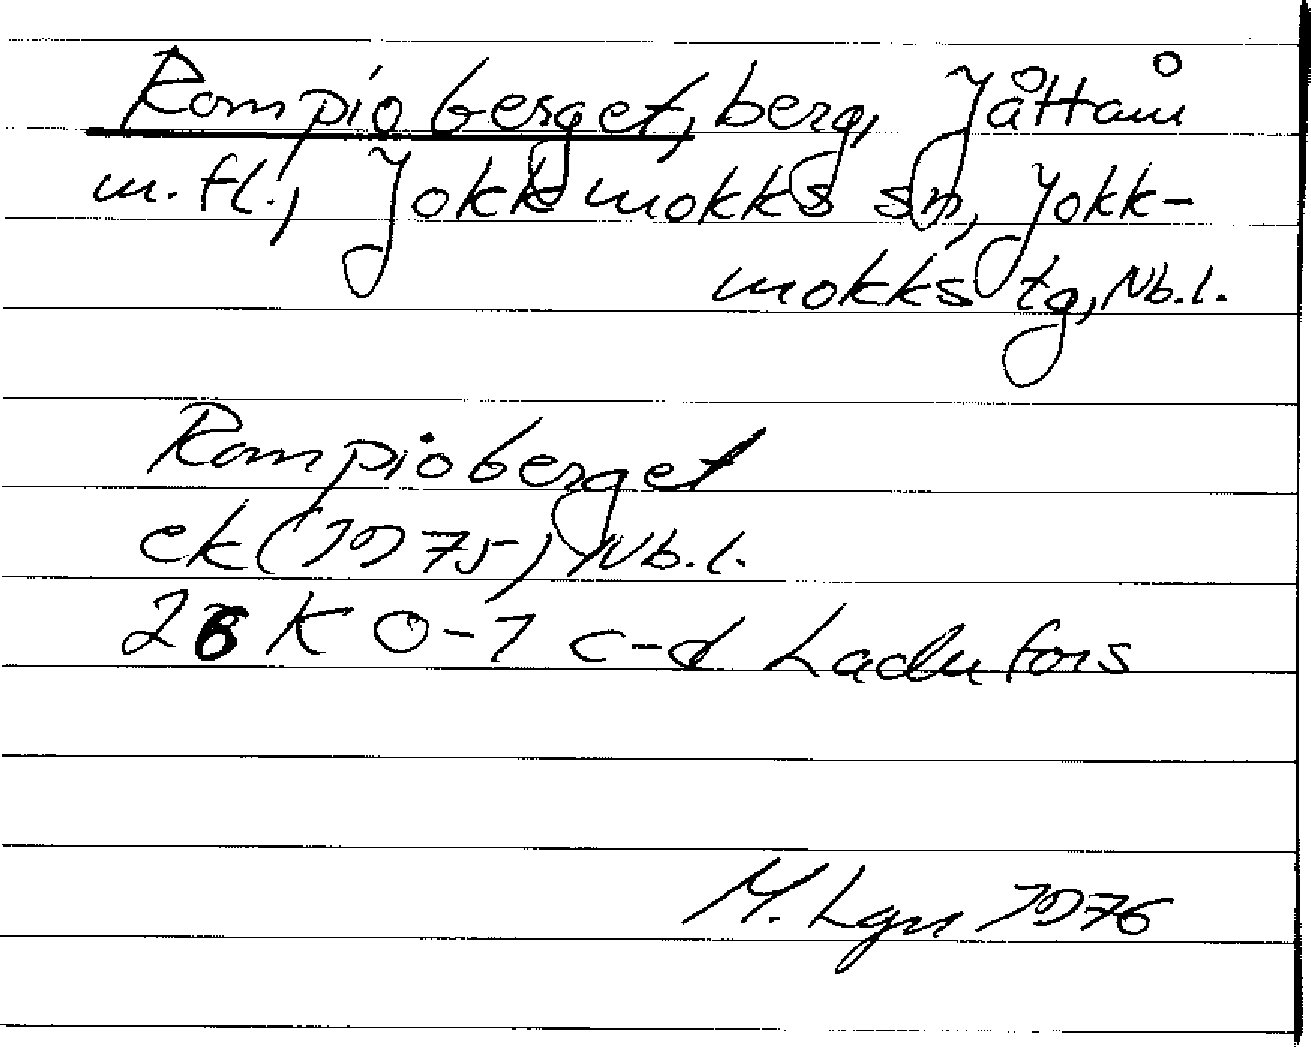 Rompioberget, berg, Jåttam
m. fl., Jokkmokks sn, Jokk-
mokks tg, Nb.l.
Rompioberget
ek (1975) Nb.l.
26 K 0-1 c-d Ladufors
M. Lgn 1976